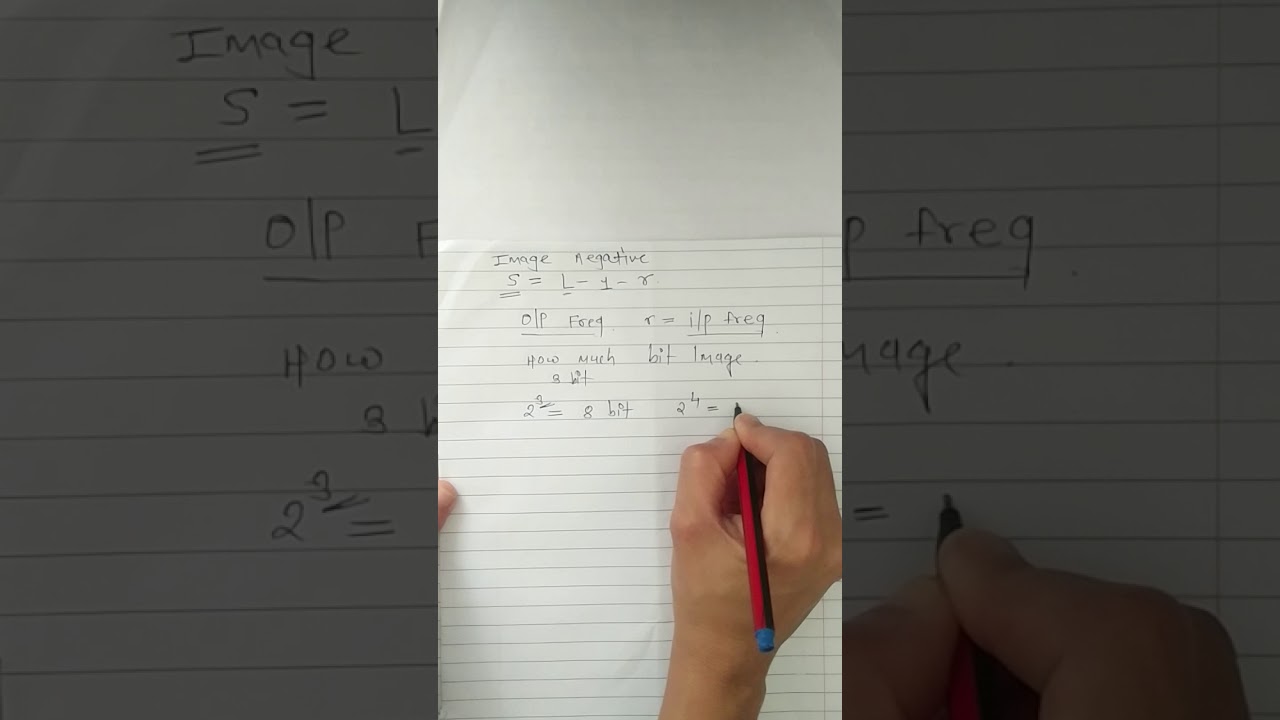 Image Negative
S = L - 1 - r.
O/P Freq. r = i/p freq.
How much bit Image.
3 bit
2^3 = 8 bit 2^4 =